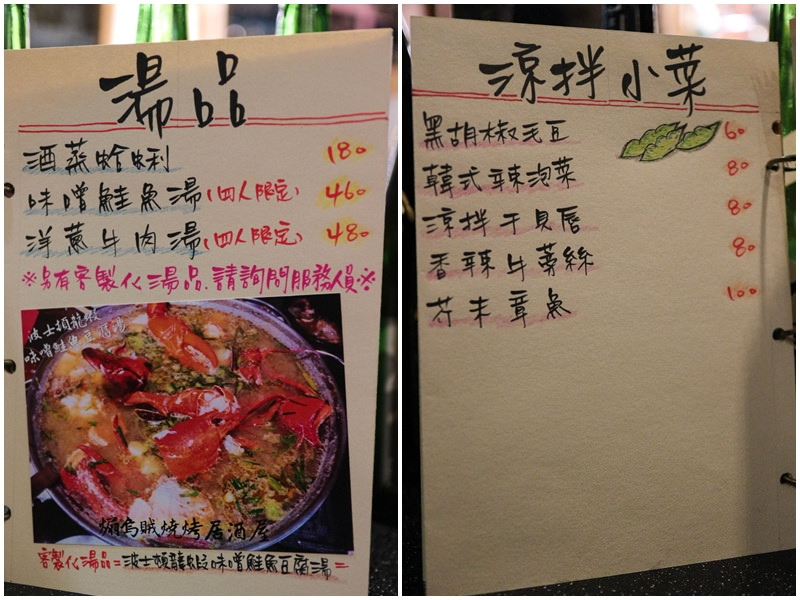 湯品
酒蒸蛤蜊 180
味噌鮭魚湯(四人限定) 460
洋蔥牛肉湯(四人限定) 480
※另有客製化湯品.請詢問服務人員※
波士頓龍蝦
味噌鮭魚豆腐湯
熗烏賊燒烤居酒屋
客製化湯品=波士頓龍蝦味噌鮭魚豆腐湯=
涼拌小菜
黑胡椒毛豆 60
韓式辣泡菜 80
涼拌干貝唇 80
香辣牛蒡絲 80
芥末章魚 100